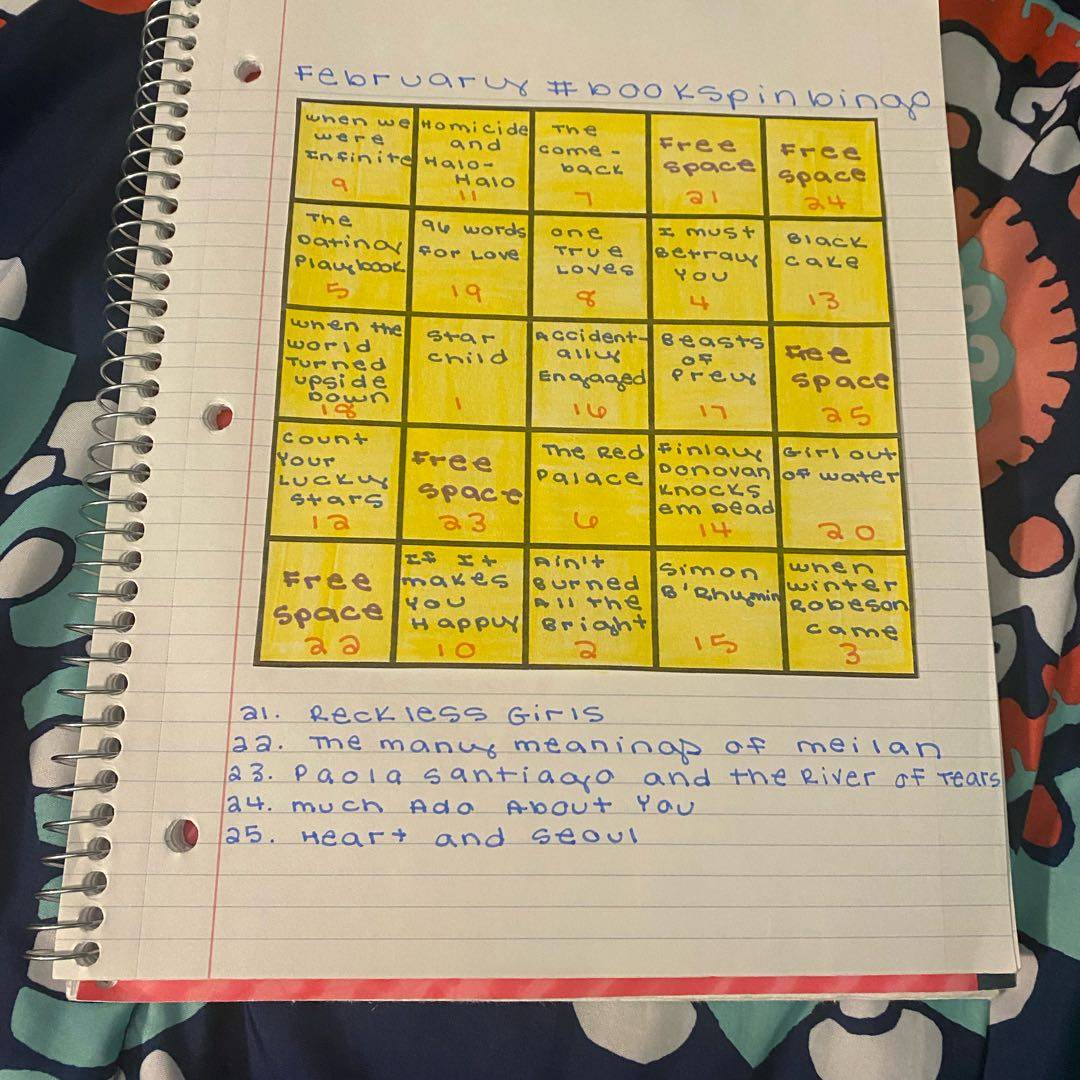 February #bookspinbingo
when we
were
Infinite
9
Homicide
and
Halo-
Halo
11
The
come-
back
7
Free
space
21
Free
space
24
The
Dating
Playbook
5
96 words
for Love
19
one
True
Loves
8
I must
Betray
You
4
Black
cake
13
when the
world
Turned
upside
Down
18
star
child
1
Accident-
ally
Engaged
16
Beasts
of
Prey
17
Free
space
25
count
Your
Lucky
stars
12
Free
space
23
The Red
Palace
6
Finlay
Donovan
Knocks
em Dead
14
Girl out
of water
20
Free
space
22
If It
makes
You
Happy
10
Ain't
Burned
All the
Bright
2
Simon
B'Rhymin
15
when
winter
Robeson
came
3
21. Reckless Girls
22. The many meanings of meilan
23. Paola santiago and the River of Tears
24. much Ado About You
25. Heart and Seoul